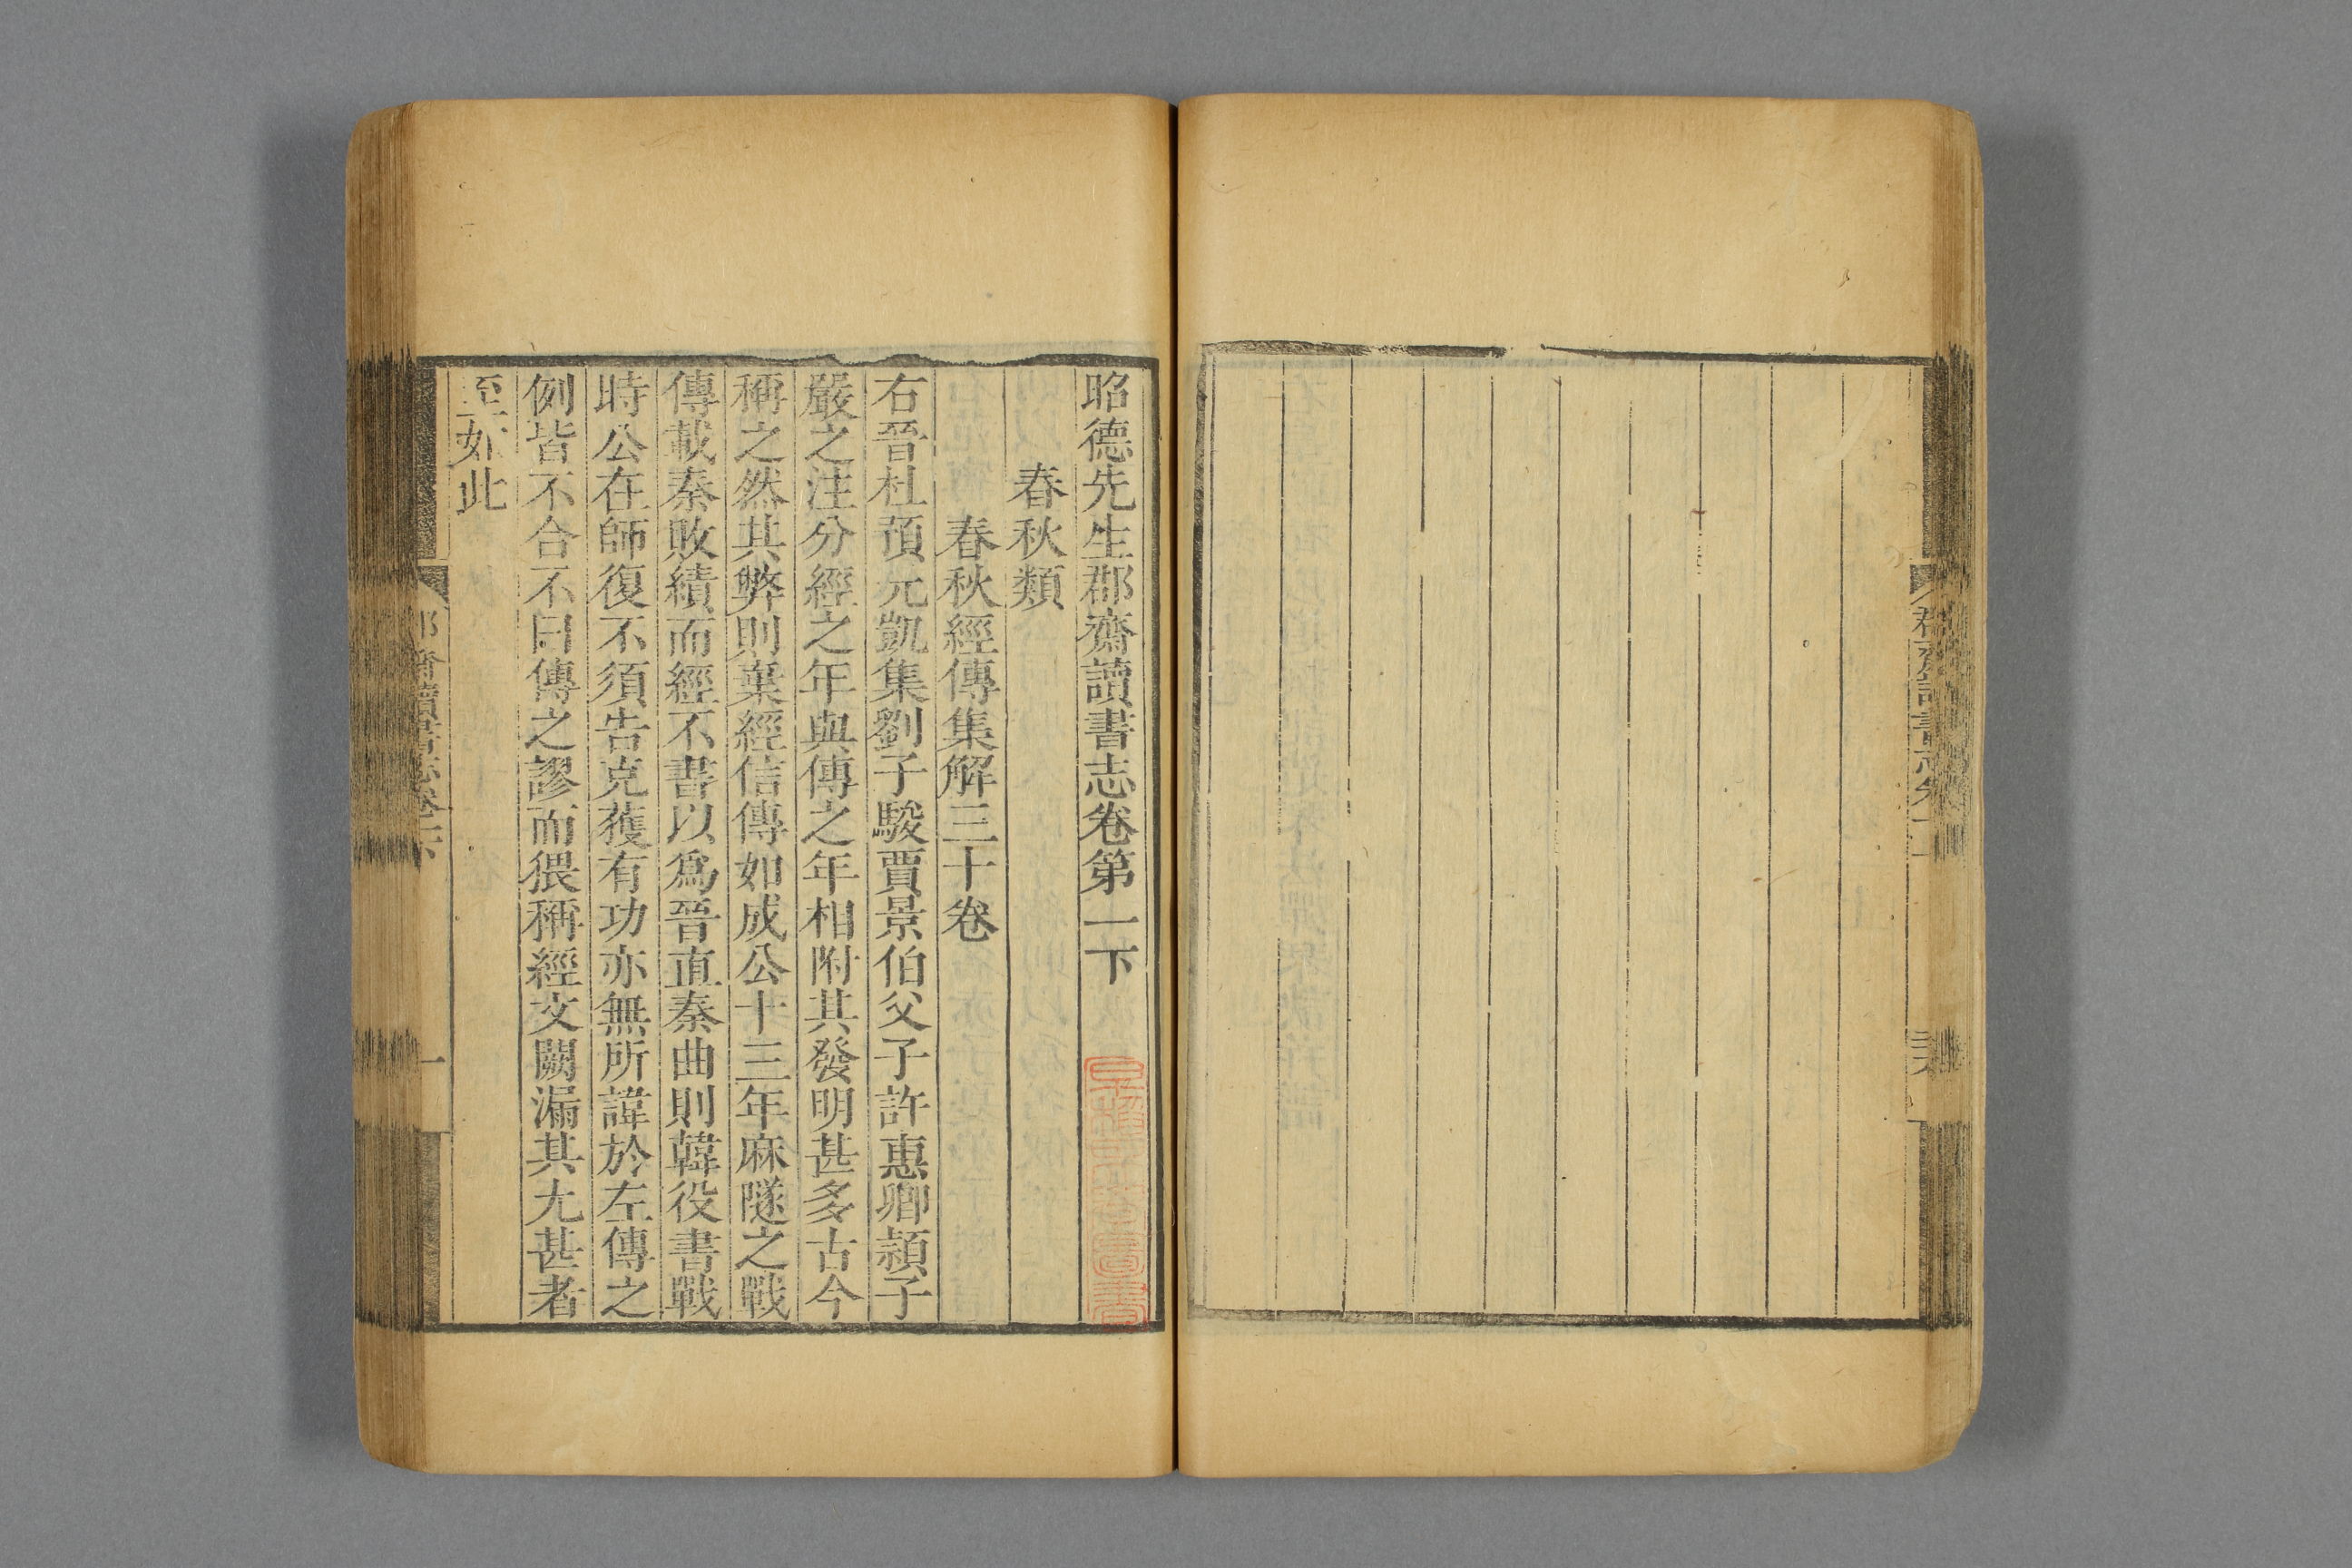 昭德先生郡齋讀書志卷第一下
春秋類
春秋經傳集解三十卷
右晉杜預元凱集劉子駿賈景伯父子許惠卿潁子
嚴之注分經之年與傳之年相附其發明甚多古今
稱之然其弊則棄經信傳如成公十三年麻隧之戰
傳載秦敗績而經不書以爲晉直秦曲則韓役書戰
時公在師復不須告克獲有功亦無所諱於左傳之
例皆不合不曰傳之謬而猥稱經文闕漏其尤甚者
至如此